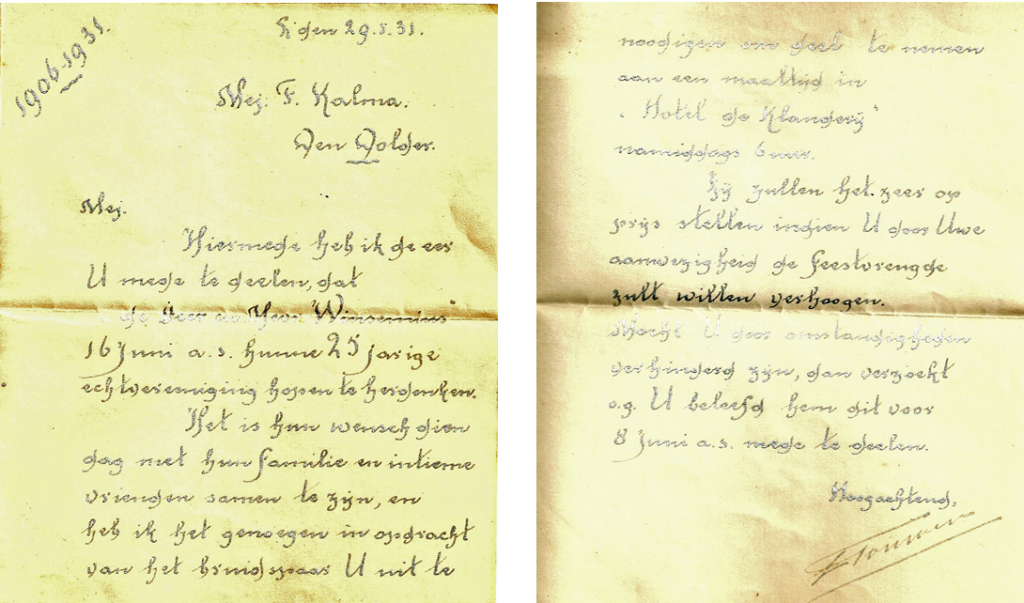 1906-1931.
Eigen 29.5.31.
Mej. F. Kalma.
Den Dolder.
Mej.
Hiermede heb ik de eer
U mede te deelen, dat
de Heer en Mevr. Winsemius
16 Juni a.s. hunne 25 jarige
echtvereeniging hopen te herdenken.
Het is hun wensch dien
dag met hun familie en intieme
vrienden samen te zijn, en
heb ik het genoegen in opdracht
van het bruidspaar U uit te
noodigen om deel te nemen
aan een maaltijd in
"Hotel de Klanderij"
namiddags 6 uur.
Zij zullen het zeer op
prijs stellen indien U door Uwe
aanwezigheid de feestvreugde
zult willen verhoogen.
Mocht U door omstandigheden
verhinderd zijn, dan verzoekt
o.g. U beleefd hem dit voor
8 Juni a.s. mede te deelen.
Hoogachtend,